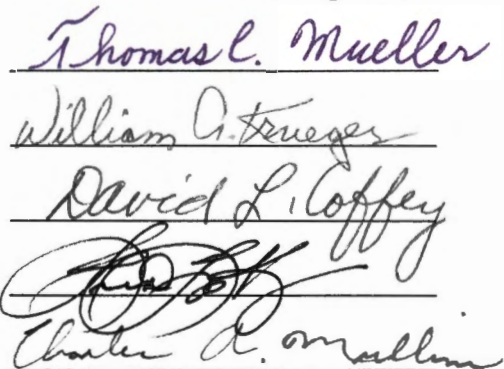 Thomas C. Mueller
William A. Krueger
David L. Coffey
Charles A. Mullins